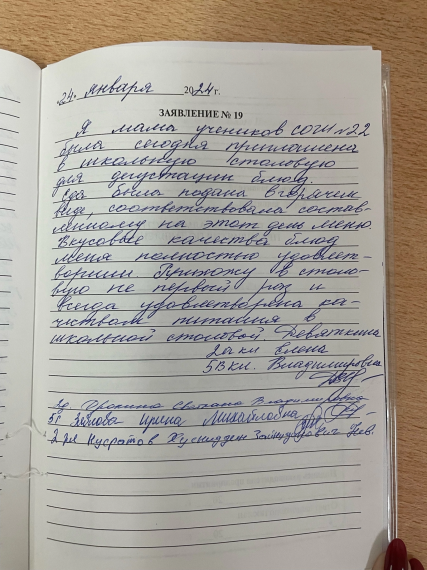 "24" января 2024 г.
ЗАЯВЛЕНИЕ № 19
Я мама учеников СОГШ №22
была сегодня приглашена
в школьную столовую
для дегустации блюд.
Еда была подана в горячем
виде, соответствовала состав-
ленному на этот день меню.
Вкусовые качества блюд
меня полностью удовлет-
ворили. Прихожу в столо-
вую не первый раз и
всегда удовлетворена ка-
чеством питания в
школьной столовой. Девяткина
2а кл Елена
5В кл. Владимировна
Светлана Владимировна
5г Ирина Михайловна
2 Нусратов